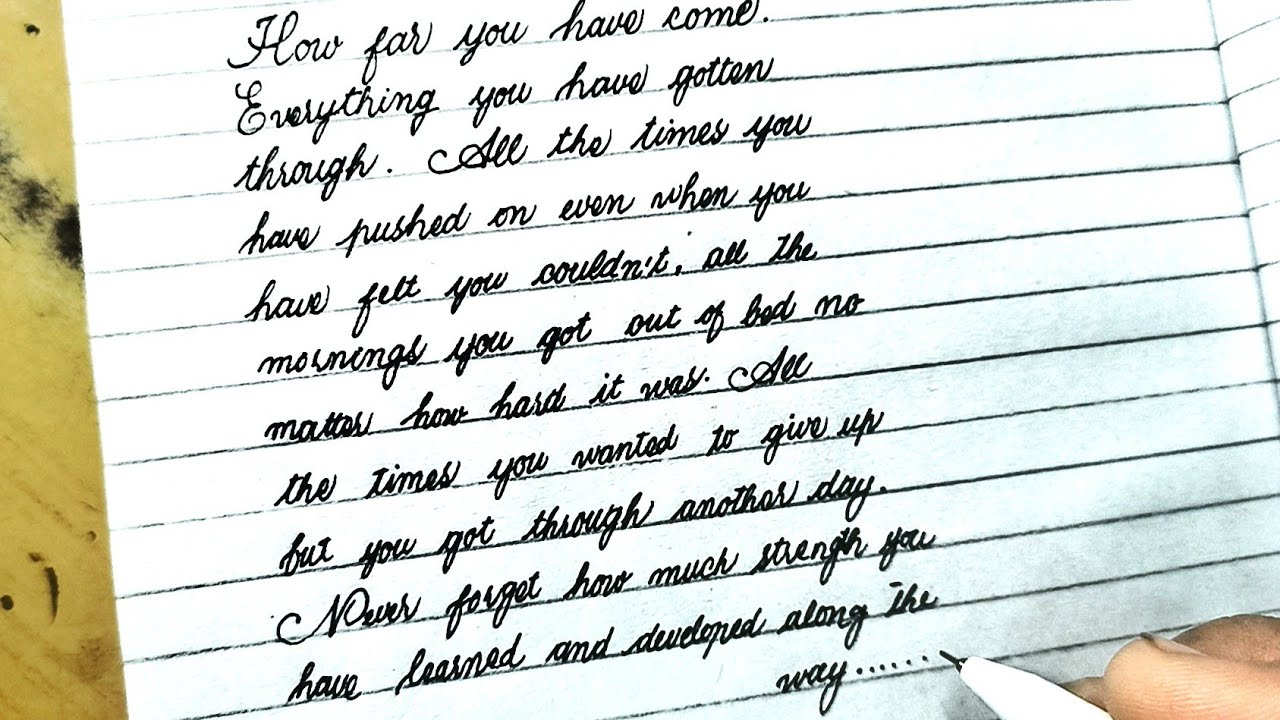 How far you have come.
Everything you have gotten
through. All the times you
have pushed on even when you
have felt you couldn't, all the
mornings you got out of bed no
matter how hard it was. All
the times you wanted to give up
but you got through another day.
Never forget how much strength you
have learned and developed along the
way......